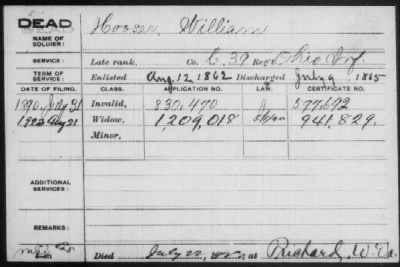 DEAD
NAME OF SOLDIER: Hooser, William
SERVICE: Late rank, Co. C, 39 Reg't Ohio Inf.
TERM OF SERVICE: Enlisted Aug. 12, 1862 Discharged July 9, 1865
DATE OF FILING. CLASS. APPLICATION NO. LAW. CERTIFICATE NO.
1890, July 31 Invalid, 830,470 577,692
1922 Aug 21 Widow, 1,209,018 941,829.
Minor,
ADDITIONAL SERVICES:
REMARKS:
Died July 22, at Prichard, W. Va.